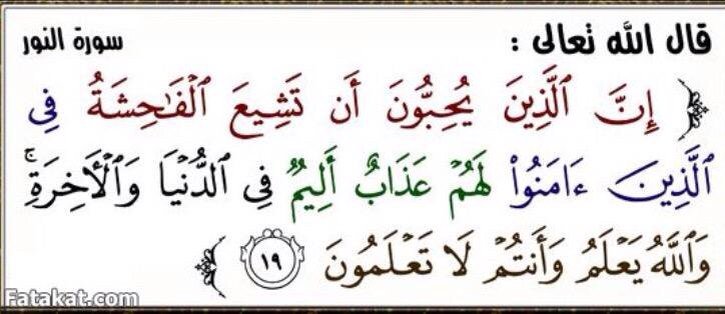 قال الله تعالى : سورة النور
﴿ إِنَّ ٱلَّذِينَ يُحِبُّونَ أَن تَشِيعَ ٱلْفَٰحِشَةُ فِى
ٱلَّذِينَ ءَامَنُوا۟ لَهُمْ عَذَابٌ أَلِيمٌ فِى ٱلدُّنْيَا وَٱلْءَاخِرَةِ ۚ
وَٱللَّهُ يَعْلَمُ وَأَنتُمْ لَا تَعْلَمُونَ ١٩ ﴾
Fatakat.com